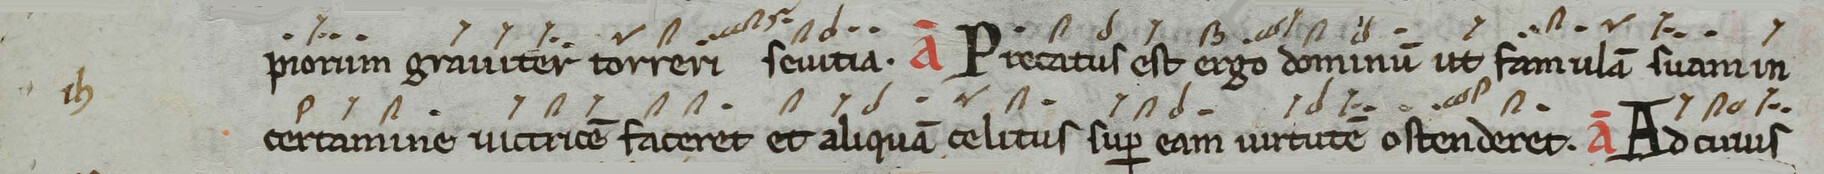 piorum grauiter torreri seuitia. ā Precatus est ergo dominū ut famulā suam in
ih
certamine uictricē faceret et aliquā celitus suꝑ eam uirtutē ostenderet. ā Ad cuius